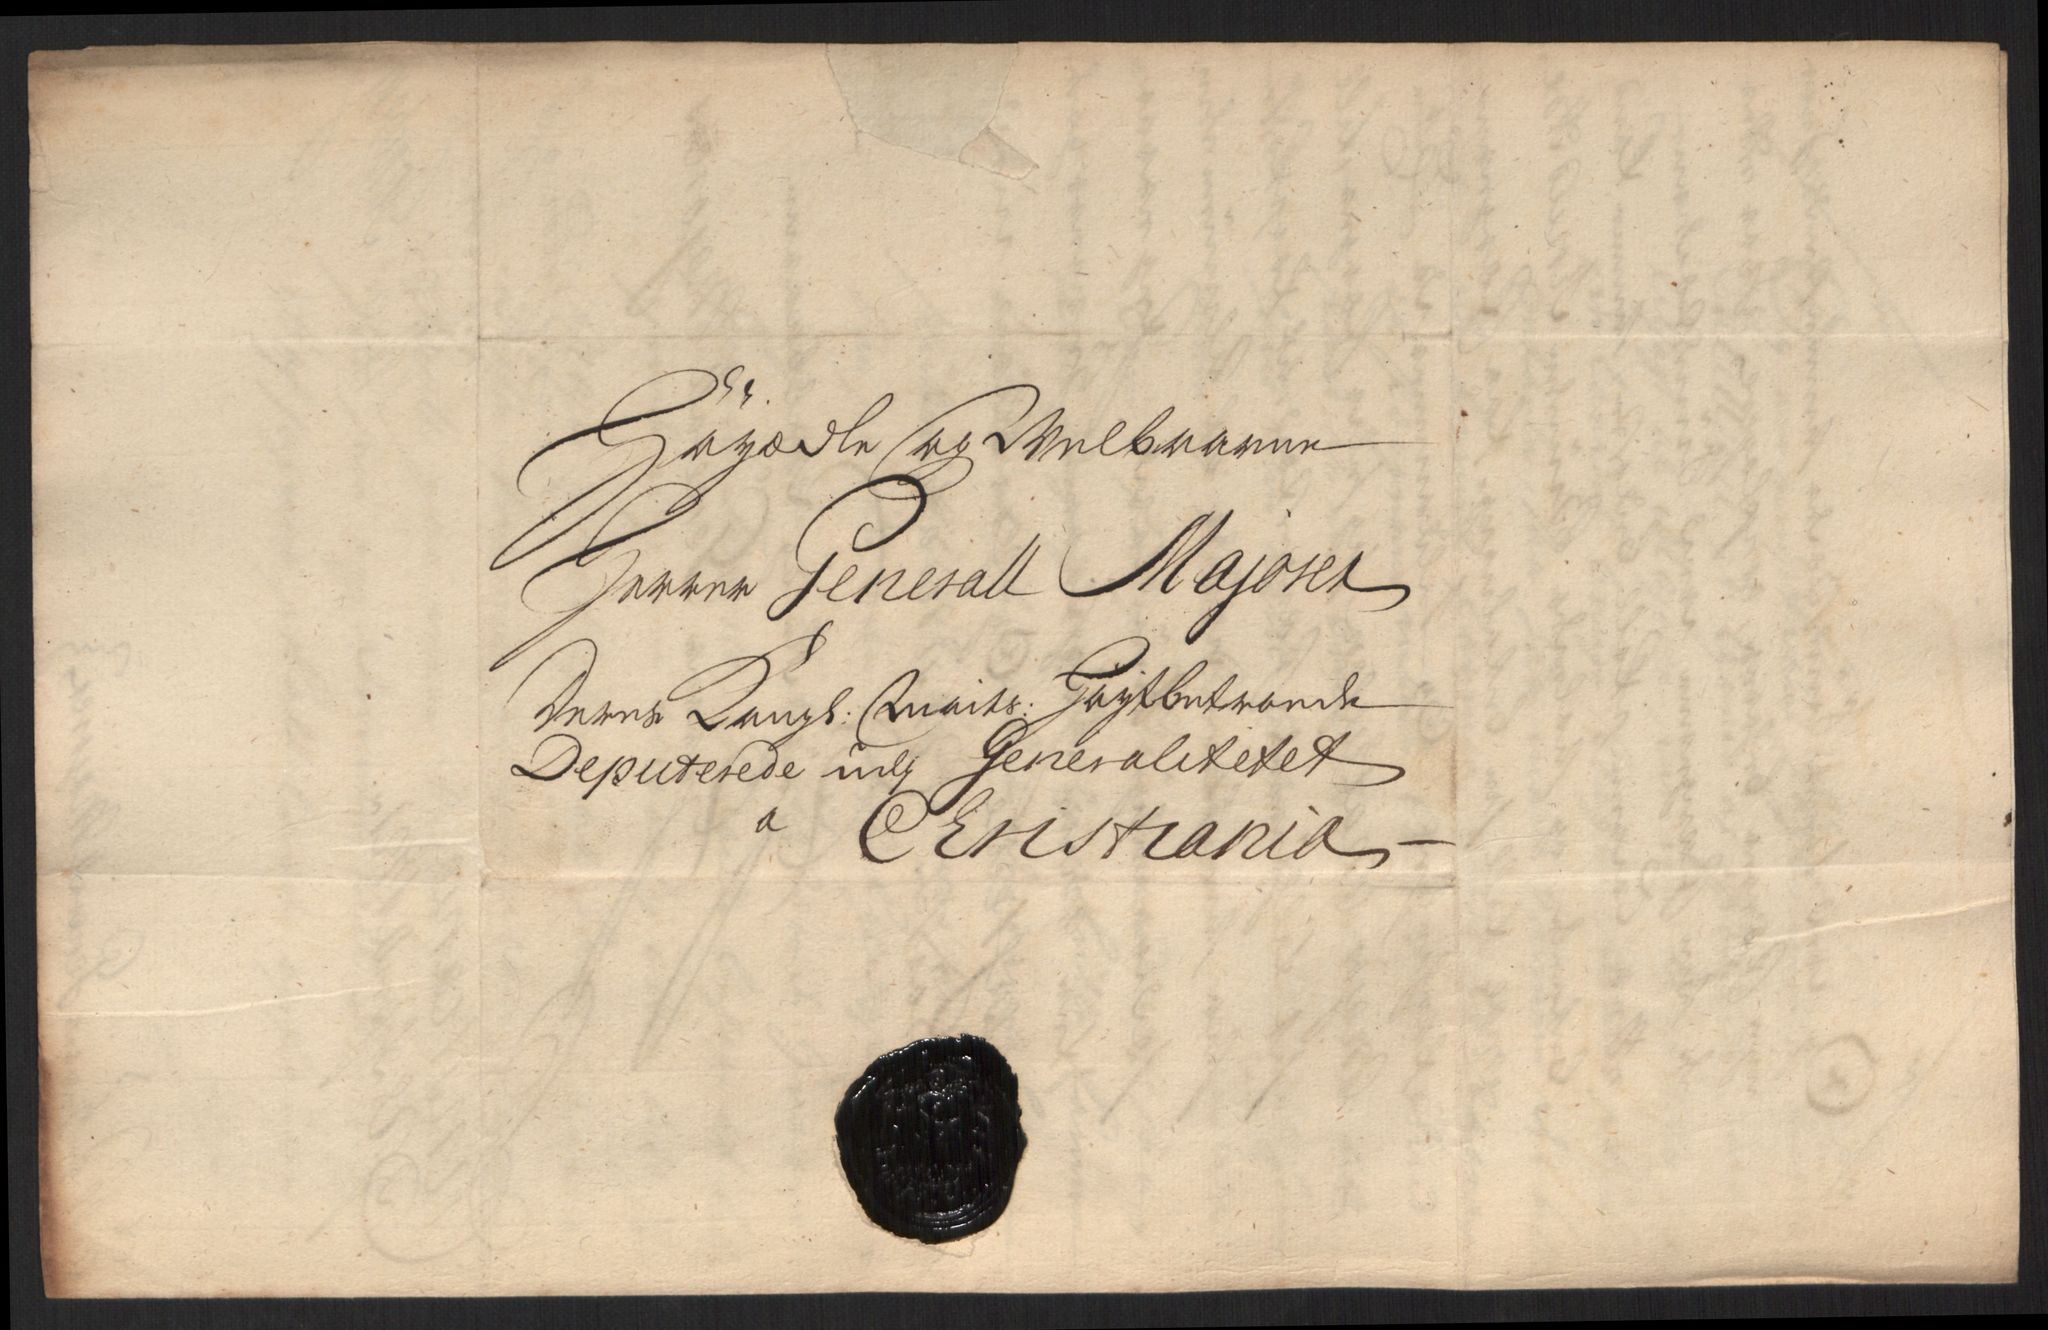 Høyædle og Welbaarne
Herrer Generall Majorer
Deres Kongl: Maits: Høytbetroede
Deputerede udj Generalitetet
a Christiania